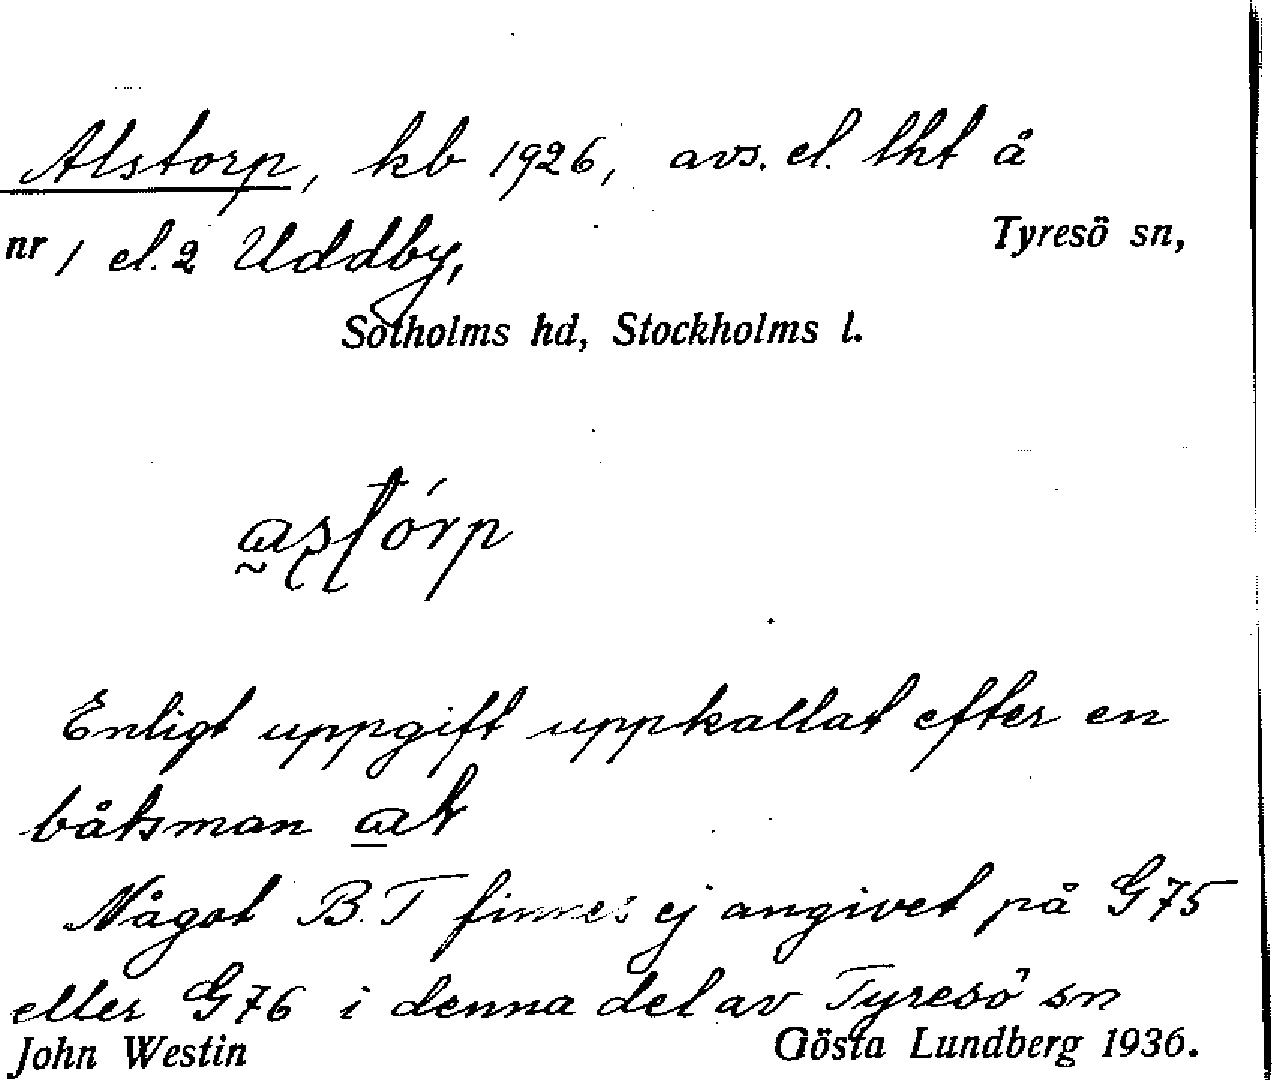 Alstorp, kb 1926, avs. el. lht å
nr 1 el. 2 Uddby, Tyresö sn,
Sotholms hd, Stockholms l.
astórp
Enligt uppgift uppkallat efter en
båtsman al
Något B.T finnes ej angivet på G75
eller G76 i denna del av Tyresö sn
John Westin Gösta Lundberg 1936.